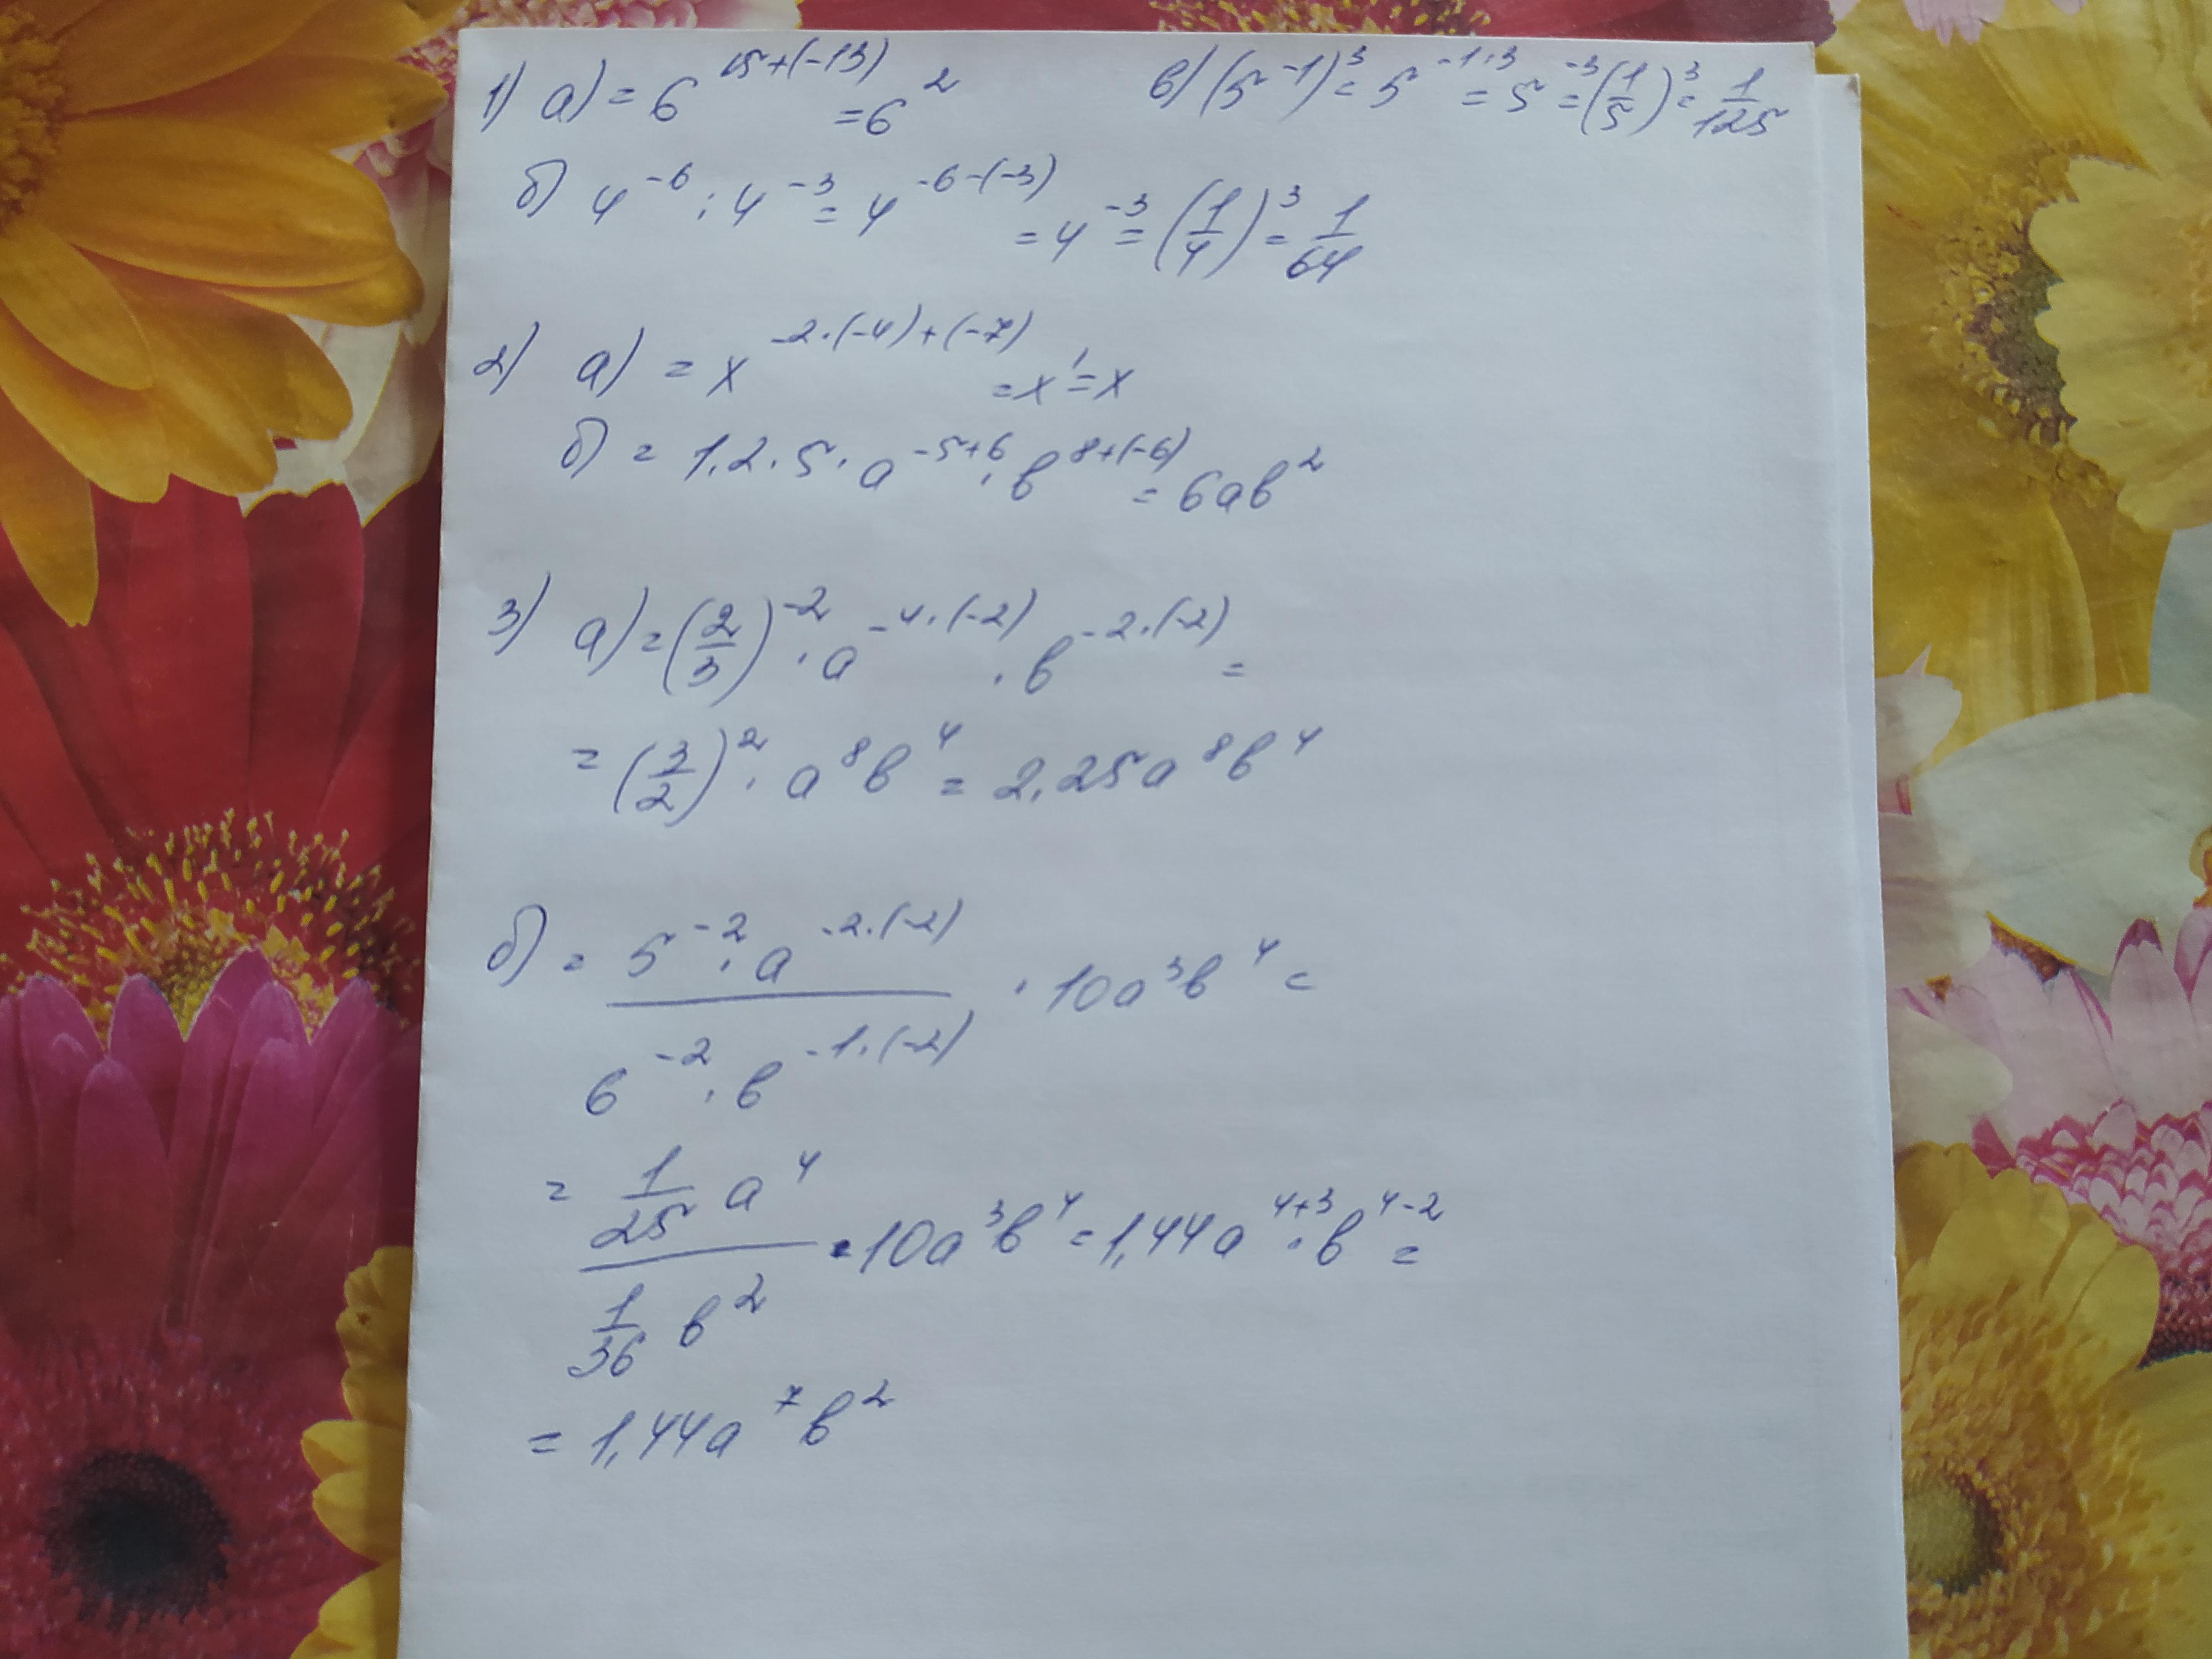 1) а) = 6^{15+(-13)} = 6^2
в) (5^{-1})^3 = 5^{-1·3} = 5^{-3} = (1/5)^3 = 1/125
б) 4^{-6} : 4^{-3} = 4^{-6-(-3)} = 4^{-3} = (1/4)^3 = 1/64
2) а) = x^{-2·(-4)+(-7)} = x^1 = x
б) = 1,2 · 5 · a^{-5+6} · b^{8+(-6)} = 6ab^2
3) а) = (2/3)^{-2} · a^{-4·(-2)} · b^{-2·(-2)} =
= (3/2)^2 · a^8 b^4 = 2,25a^8 b^4
б) = (5^{-2} · a^{-2·(-2)})/(6^{-2} · b^{-1·(-2)}) · 10a^3 b^4 =
= (1/25 a^4)/(1/36 b^2) · 10a^3 b^4 = 1,44a^{4+3} · b^{4-2} =
= 1,44a^7 b^2